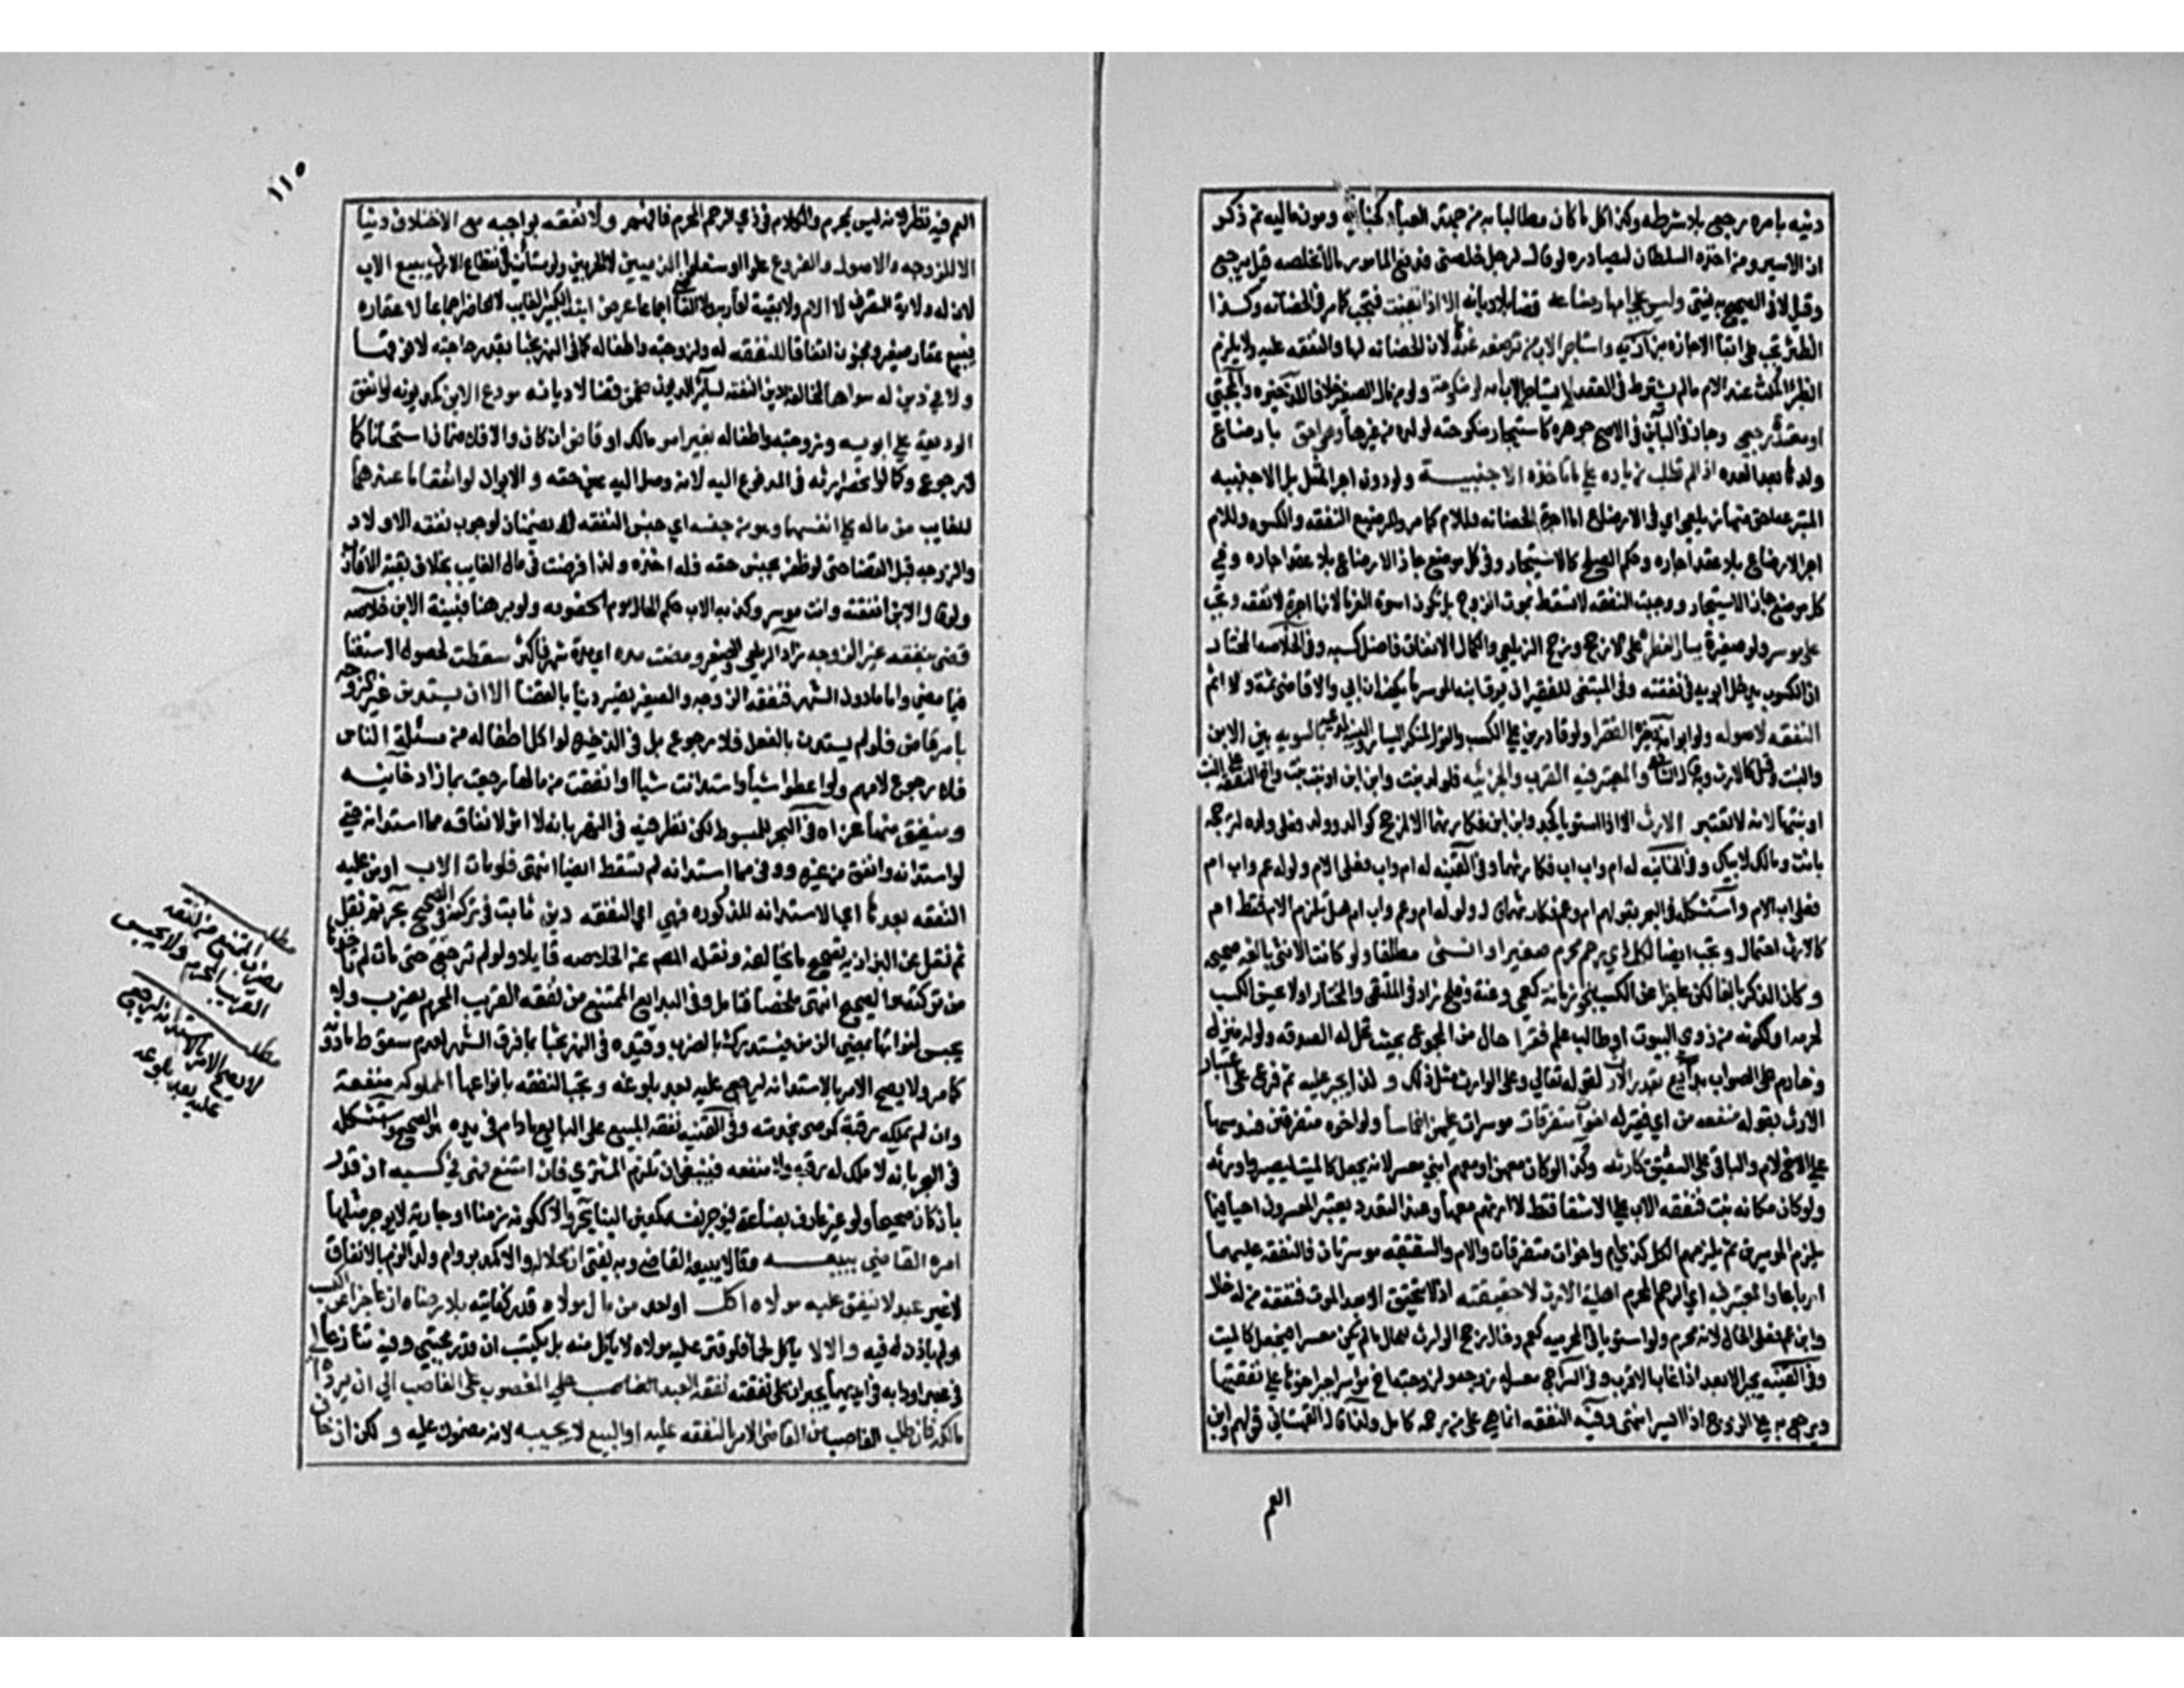 دينه بامره يرجع بلا شرطه وكذا كل ما كان مطالبا به من جهة العباد كجناية ومون مالية ثم ذكر
ان الاسير ومن اخذه السلطان ليصادره لو قال لرجل خلصني فدفع المامور مالا فخلصه قيل يرجع
وقيل لا في الصحيح به يفتى وليس على امه ارضاعه قضا بل ديانة الا اذا تعينت فتجبر كما مر في الحضانة وكذا
الظئر تجبر على ابقا الاجارة ويستاجر الاب من ترضعه عندها لان الحضانة لها والنفقة عليه ولا يلزم
الظئر المكث عند الام ما لم يشترط في العقد لا يستاجر الاب امه لو منكوحة ولو من مال الصغير خلافا للذخيره والمجتبى
او معتدة رجعي وجاز في الباين في الاصح جوهره كاستيجار منكوحته لولده من غيرها وهي احق بارضاع
ولدها بعد العده اذا لم تطلب زياده على ما تاخذه الاجنبيه ولو دون اجر المثل بل الاجنبيه
المتبرعه احق منها زيلعي اي في الارضاع اما اجرة الحضانه فللام كما مر وللرضيع النفقه والكسوه وللام
اجر الارضاع بلا عقد اجاره وحكم الصلح كالاستيجار وفي كل موضع جاز الارضاع بلا عقد اجاره وفي
كل موضع جاز الاستيجار ووجبت النفقه لا تسقط بموت الزوج بل تكون اسوة الغرما لانها اجرة لا نفقه وتجب
على موسر ولو صغيرا يسار الفطرة على الارجح ورجح الزيلعي والكمال الانفاق فاضل كسبه وفي الخلاصه المختار
ان الكسوب يدخل ابويه في نفقته وفي المبتغى للفقير ان يسرق من ابنه الموسر ما يكفيه ان ابى ولا قاضي ثمة والا اثم
النفقه لاصوله ولو اب امه الفقرا ولو قادرين على الكسب والقول لمنكر اليسار والبينه لمدعيه بالسويه بين الابن
والبنت وقيل كالارث وبه قال الشافعي والمعتبر فيه القرب والجزئيه فلو له بنت وابن ابن او بنت بنت واخ النفقه على البنت
او بنتها لانه لا يعتبر الارث الا اذا استويا كجد وابن ابن فكارثهما الا لمرجح كوالد وولد فعلى ولده لترجحه
بانت ومالك لابيك وفي الخانيه له ام واب اب فكارثهما وفي القنيه له ام واب ام فعلى الام ولو له عم واب ام
فعلى اب الام واستشكله في البحر بقولهم ام وعم فكارثهما قال ولو له ام وعم واب ام هل تلزم الام فقط ام
كالارث احتمال وتجب ايضا لكل ذي رحم محرم صغير او انثى مطلقا ولو كانت الانثى بالغه صحيحه
وكان الذكر بالغا لكن عاجزا عن الكسب بنحو زمانه كعمى وعته وفلج زاد في الملتقى والمختار او لا يحسن الكسب
لحرفه او لكونه من ذوي البيوت او طالب علم فقيرا حال من المجموع بحيث تحل له الصدقه ولو له منزل
وخادم على الصواب بدايع بقدر الارث لقوله تعالى وعلى الوارث مثل ذلك ولذا يجبر عليه ثم فرع على اعتبار
الارث بقوله فنفقه من اي فقير له اخوات متفرقات موسرات عليهن اخماسا ولو اخوه متفرقين فسدسها
على الاخ لام والباقي على الشقيق كارثه وكذا لو كان معهن او معهم ابن معسر لانه يجعل كالميت ليصيروا ورثه
ولو كان مكانه بنت فنفقه الاب على الاشقا فقط لارثهم معها وعند التعدد يعتبر المعسرون احيا فيما
يلزم الموسرين ثم يلزمهم الكل كذي ام واخوات متفرقات والام والشقيقه موسرتان فالنفقه عليهما
ارباعا والمعتبر فيه اي الرحم المحرم اهلية الارث لا حقيقته اذ لا يتحقق الا بعد الموت فنفقه من له خال
وابن عم على الخال لانه محرم ولو استويا في المحرميه كعم وخال رجح الوارث للحال ما لم يكن معسرا فيجعل كالميت
وفي القنيه يجبر الابعد اذا غاب الاقرب وفي السراج معسر له زوجه ولزوجته اخ موسر اجبر اخوها على نفقتها
ويرجع به على الزوج اذا ايسر انتهى وفيه النفقه انما هي على من رحمه كامل ولذا قال القهستاني قولهم وابن
العم
١١٥
العم فيه نظر لانه ليس بمحرم والكلام في ذي الرحم المحرم فافهم ولا نفقه بواجبه مع الاختلاف دينا
الا للزوجه والاصول والفروع علوا او سفلوا الذميين لا الحربيين ولو مستامنين لانقطاع الارث يبيع الاب
لان له ولاية التصرف لا الام ولا بقية اقاربه ولا القاضي اجماعا عرض ابنه الكبير الغايب لا الحاضر اجماعا لا عقاره
فيبيع عقار صغير ومجنون اتفاقا للنفقه له ولزوجته واطفاله كما في النهر بحثا بقدر حاجته لا فوقها
ولا في دين له سواها لمخالفة دين النفقه لسائر الديون ضمن قضا لا ديانه مودع الابن كمديونه لو انفق
الوديعة على ابويه وزوجته واطفاله بغير امر مالك او قاض ان كان والا فلا ضمان استحسانا كما
لا رجوع وكما لو انحصر ارثه في المدفوع اليه لانه وصل اليه عين حقه والابوان لو انفقا ما عندهما
للغايب من ماله على انفسهما وهو من جنسه اي جنس النفقه لا يضمنان لوجوب نفقه الاولاد
والزوجه قبل القضا حتى لو ظفر بجنس حقه فله اخذه ولذا فرضت في مال الغايب بخلاف بقية الاقارب
ولو قال الابن انفقته وانت موسر وكذبه الاب حكم الحال يوم الخصومه ولو برهنا فبينة الابن خلاصه
قضى بنفقه غير الزوجه زاد الزيلعي والصغير ومضت مده اي مدة شهر فاكثر سقطت لحصول الاستغنا
فيما مضى واما ما دون الشهر فنفقه الزوجه والصغير تصير دينا بالقضا الا ان يستدين غير الزوجه
بامر قاض فلو لم يستدن بالفعل فلا رجوع بل في الذخيره لو اكل اطفاله من مسئلة الناس
فلا رجوع لامهم ولو اعطوا شيا واستدانت شيا او انفقت من مالها رجعت بما زاد خانيه
وينفق منها عزاه في البحر للمبسوط لكن نظر فيه في النهر بانه لا اثر لانفاقه مما استدانه حتى
لو استدانه وانفق من غيره ووفى مما استدانه لم تسقط ايضا انتهى فلو مات الاب او من عليه
النفقه بعدها اي الاستدانه المذكوره فهي اي النفقه دين ثابت في تركته في الصحيح بحر ثم نقل
ثم نقل عن البزازيه تصحيح ما يخالفه ونقله المصم عن الخلاصه قايلا ولو لم ترجع حتى مات لم تاخذها
من تركته هو الصحيح انتهى ملخصا فتامل وفي البدايع الممتنع من نفقه القريب المحرم يضرب ولا
يحبس لفواتها بمضي الزمن فيستدرك بالضرب وقيده في النهر بحثا بما فوق الشهر لعدم سقوط ما دونه
كما مر ولا يصح الامر بالاستدانه ليرجع عليه بعد بلوغه وتجب النفقه بانواعها لمملوكه منفعة
وان لم يملكه رقبة كموصى بخدمته وفي القنيه نفقه المبيع على البايع ما دام في يده هو الصحيح واستشكله
في البحر بانه لا ملك له رقبة ولا منفعه فينبغي ان تلزم المشتري فان امتنع فهي في كسبه ان قدر
بان كان صحيحا ولو غير عارف بصناعة فيوجر نفسه كمعين البنا بحر والا ككونه زمنا او جارية لا يوجر مثلها
امره القاضي ببيعه وقالا يبيعه القاضي وبه يفتى ان محلا له والا كمدبر وام ولد الزم بالانفاق
لا غير عبد لا ينفق عليه مولاه اكل او اخذ من مال مولاه قدر كفايته بلا رضاه ان عاجزا عن الكسب
او لم ياذن له فيه والا لا ياكل لما فلو قتر عليه مولاه لا ياكل منه بل يكتسب ان قدر مجتبى وفيه تنازعا
في عبد او دابه في ايديهما يجبران على نفقته نفقه العبد المغصوب على الغاصب الى ان يرده الى
مالكه فان طلب الغاصب من القاضي الامر بالنفقه عليه او البيع لا يجيبه لانه مضمون عليه ولكن ان خاف
مطلب
الممتنع من نفقه
القريب المحرم يضرب ولا يحبس
مطلب
لا يصح الامر بالاستدانه ليرجع
عليه بعد بلوغه